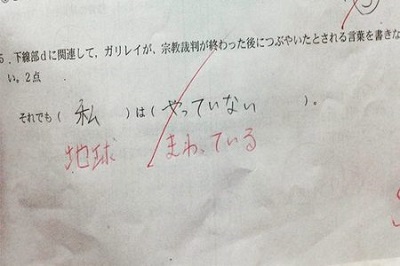 5.下線部dに関連して,ガリレイが、宗教裁判が終わった後につぶやいたとされる言葉を書きな
い。2点
それでも( 私 )は( やっていない )。
地球 まわっている